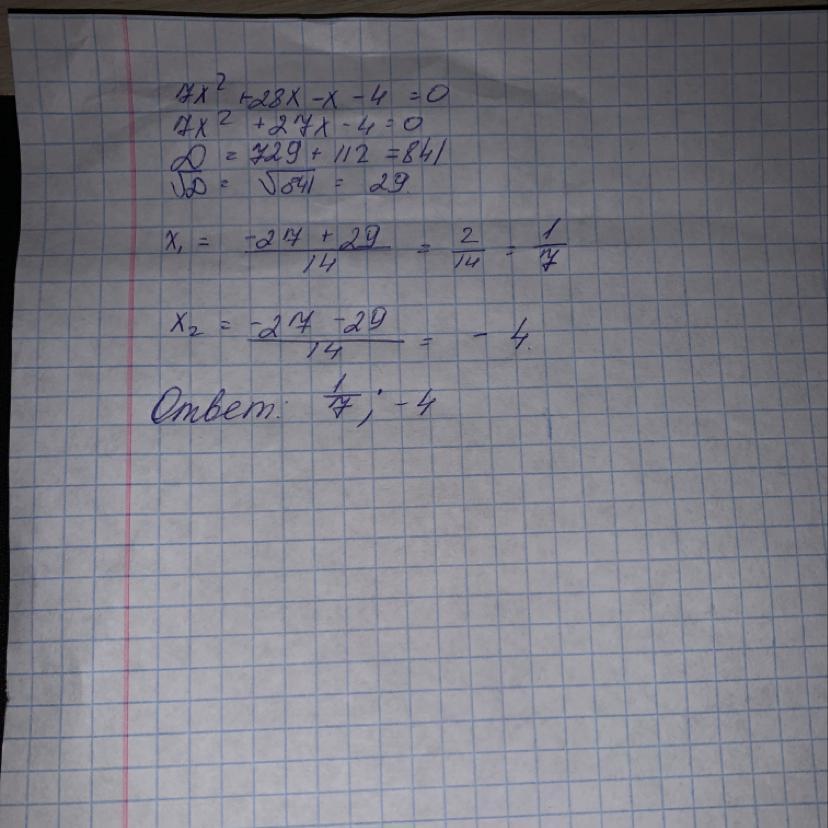 7x² + 28x - x - 4 = 0
7x² + 27x - 4 = 0
D = 729 + 112 = 841
√D = √841 = 29
x₁ = (-27 + 29)/14 = 2/14 = 1/7
x₂ = (-27 - 29)/14 = - 4.
Ответ: 1/7; -4